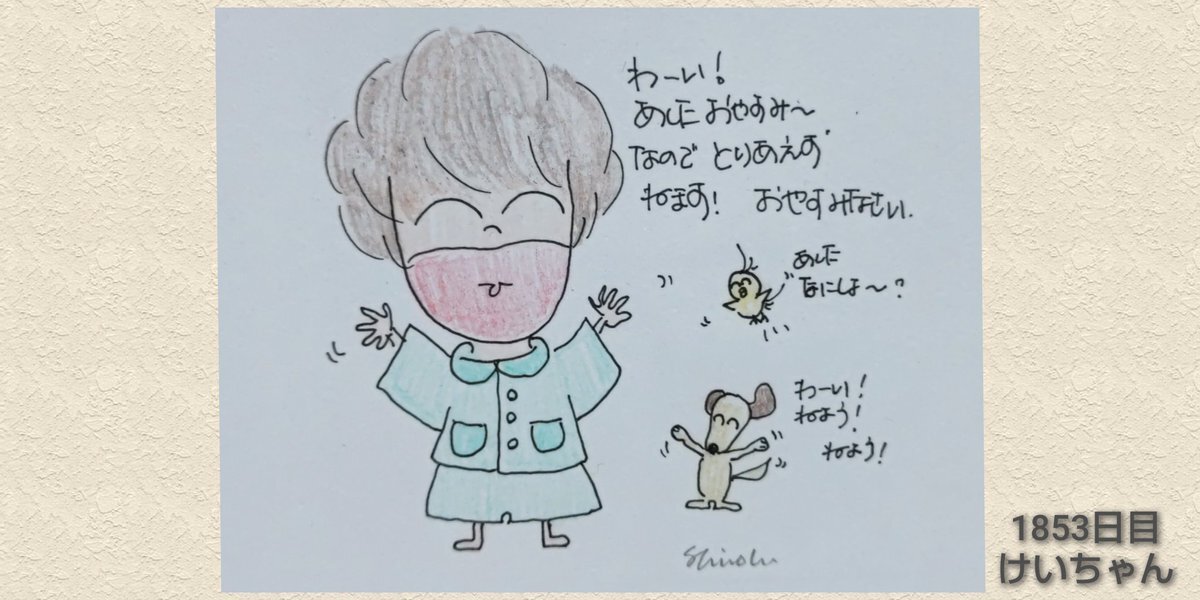 わーい!
あしたおやすみ〜
なので とりあえず
ねます! おやすみなさい.
あした
なにしよ〜?
わーい!
ねよう!
ねよう!
ひ
Shinobu
1853日目
けいちゃん